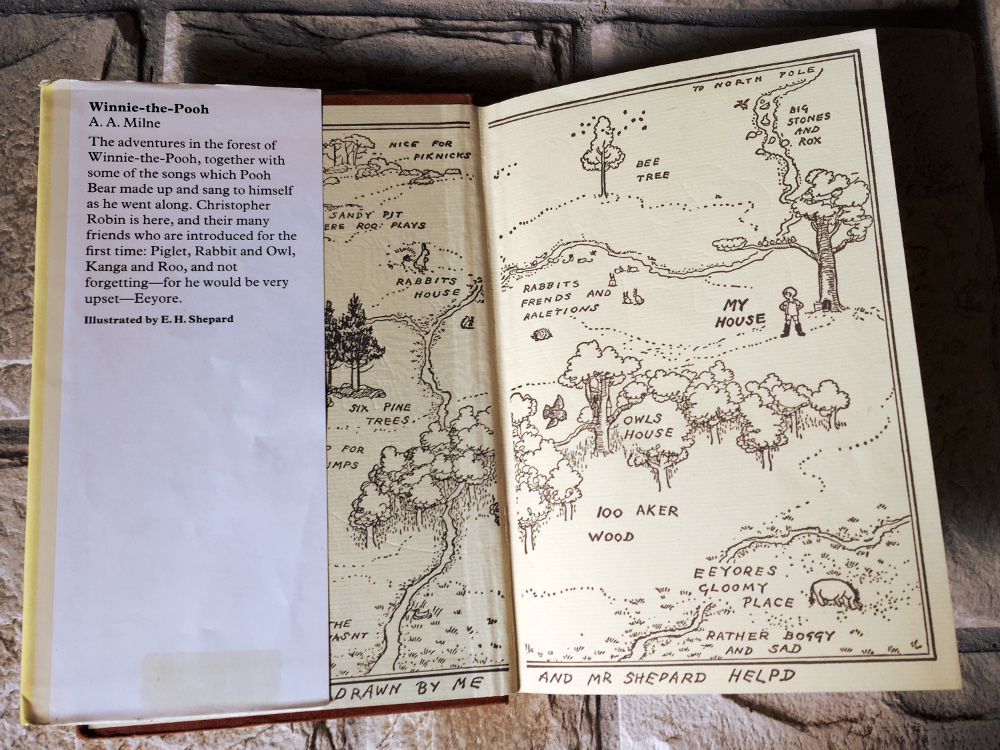 Winnie-the-Pooh
A. A. Milne
The adventures in the forest of
Winnie-the-Pooh, together with
some of the songs which Pooh
Bear made up and sang to himself
as he went along. Christopher
Robin is here, and their many
friends who are introduced for the
first time: Piglet, Rabbit and Owl,
Kanga and Roo, and not
forgetting—for he would be very
upset—Eeyore.
Illustrated by E. H. Shepard
NICE FOR
PIKNICKS
SANDY PIT
ERE ROO PLAYS
RABBITS
HOUSE
SIX PINE
TREES
FOR
THE
DRAWN BY ME
TO NORTH POLE
BIG
STONES
AND
ROX
BEE
TREE
RABBITS
FRENDS AND
RALETIONS
MY
HOUSE
OWLS
HOUSE
100 AKER
WOOD
EEYORES
GLOOMY
PLACE
RATHER BOGGY
AND SAD
AND MR SHEPARD HELPD